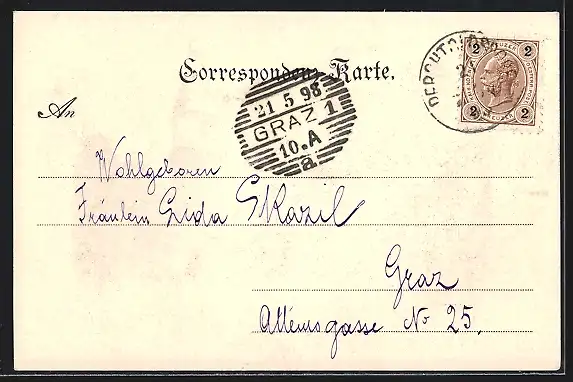 Correspondenz-Karte.
2 2
KREUZER
2 2
21 5 98
GRAZ 1
10.A
a
An
Wohlgeboren
Fräulein Gida Skazil
Graz
Attemsgasse No 25.